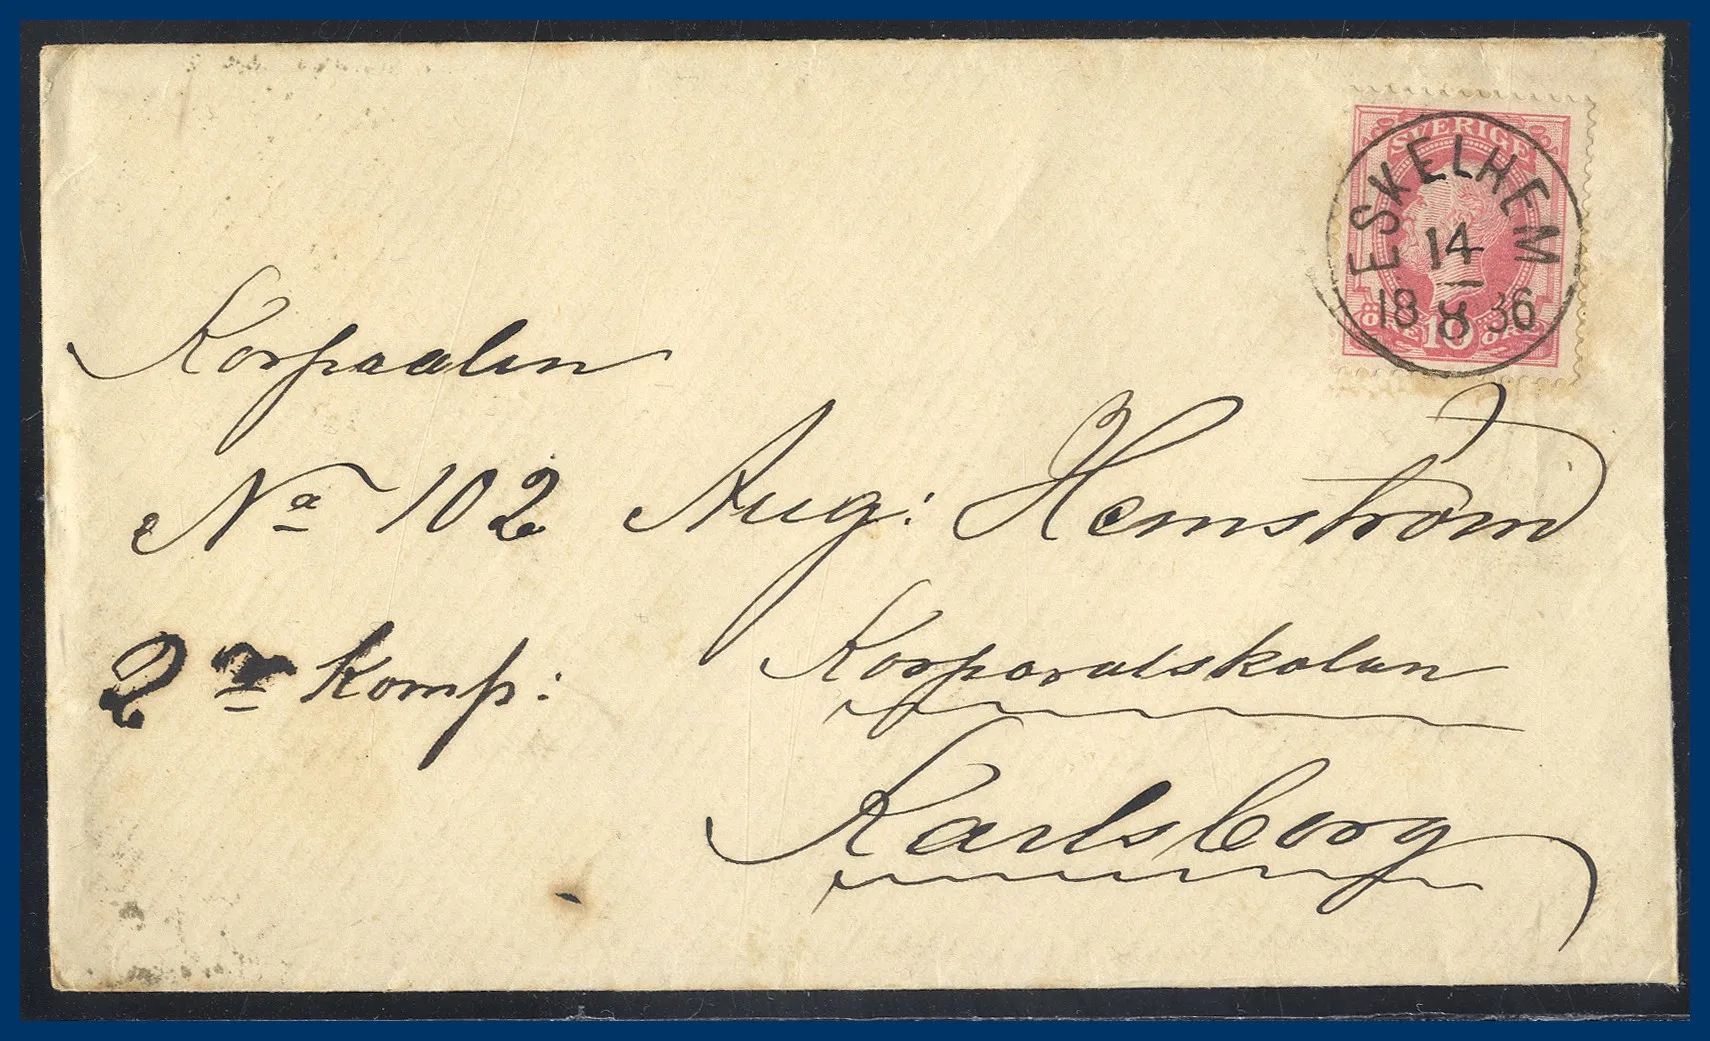 SVERIGE
ESKELHEM
14
18 8 86
ÖRE 10 ÖRE
Korpraalen
Na 102 Aug: Hemström
2a Komp:
Korporalskolan
Karlsborg